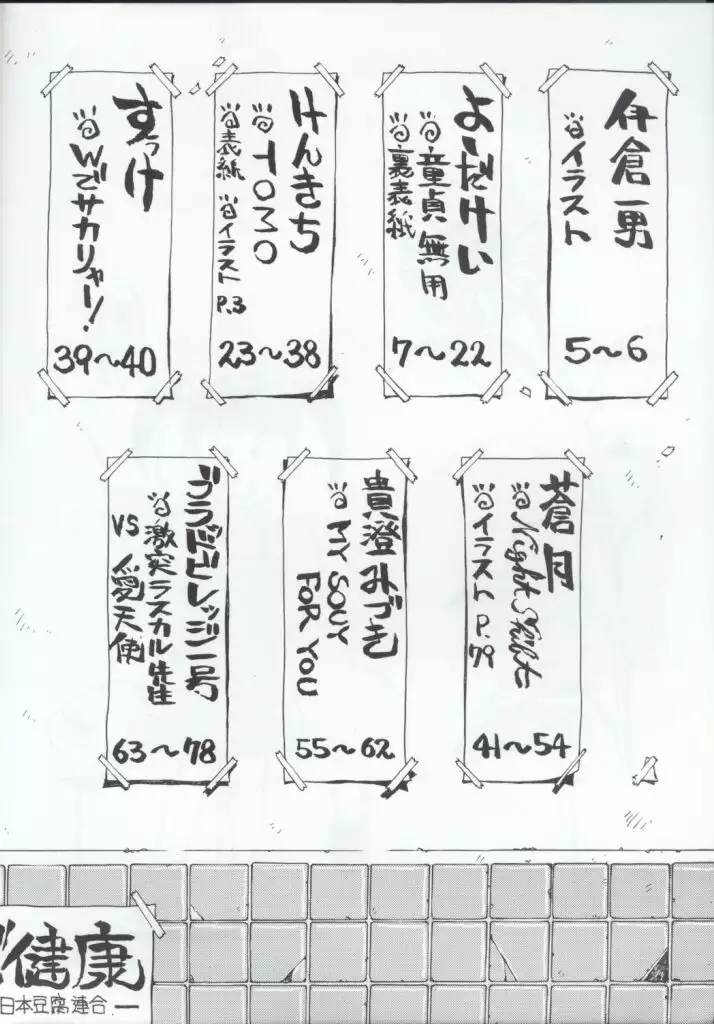 伊倉一男
イラスト
5〜6
よーだけい
童貞無用
裏表紙
7〜22
けんきち
TOMO
表紙 イラスト P.3
23〜38
すっけ
Wでサカリャー!
39〜40
蒼月
Night Shift
イラスト P.79
41〜54
貴澄みづき
MY SOUY
FOR YOU
55〜62
ブラドビレッジ一号
激突ラスカル先生
VS 人愛天使
63〜78
健康
日本豆腐連合